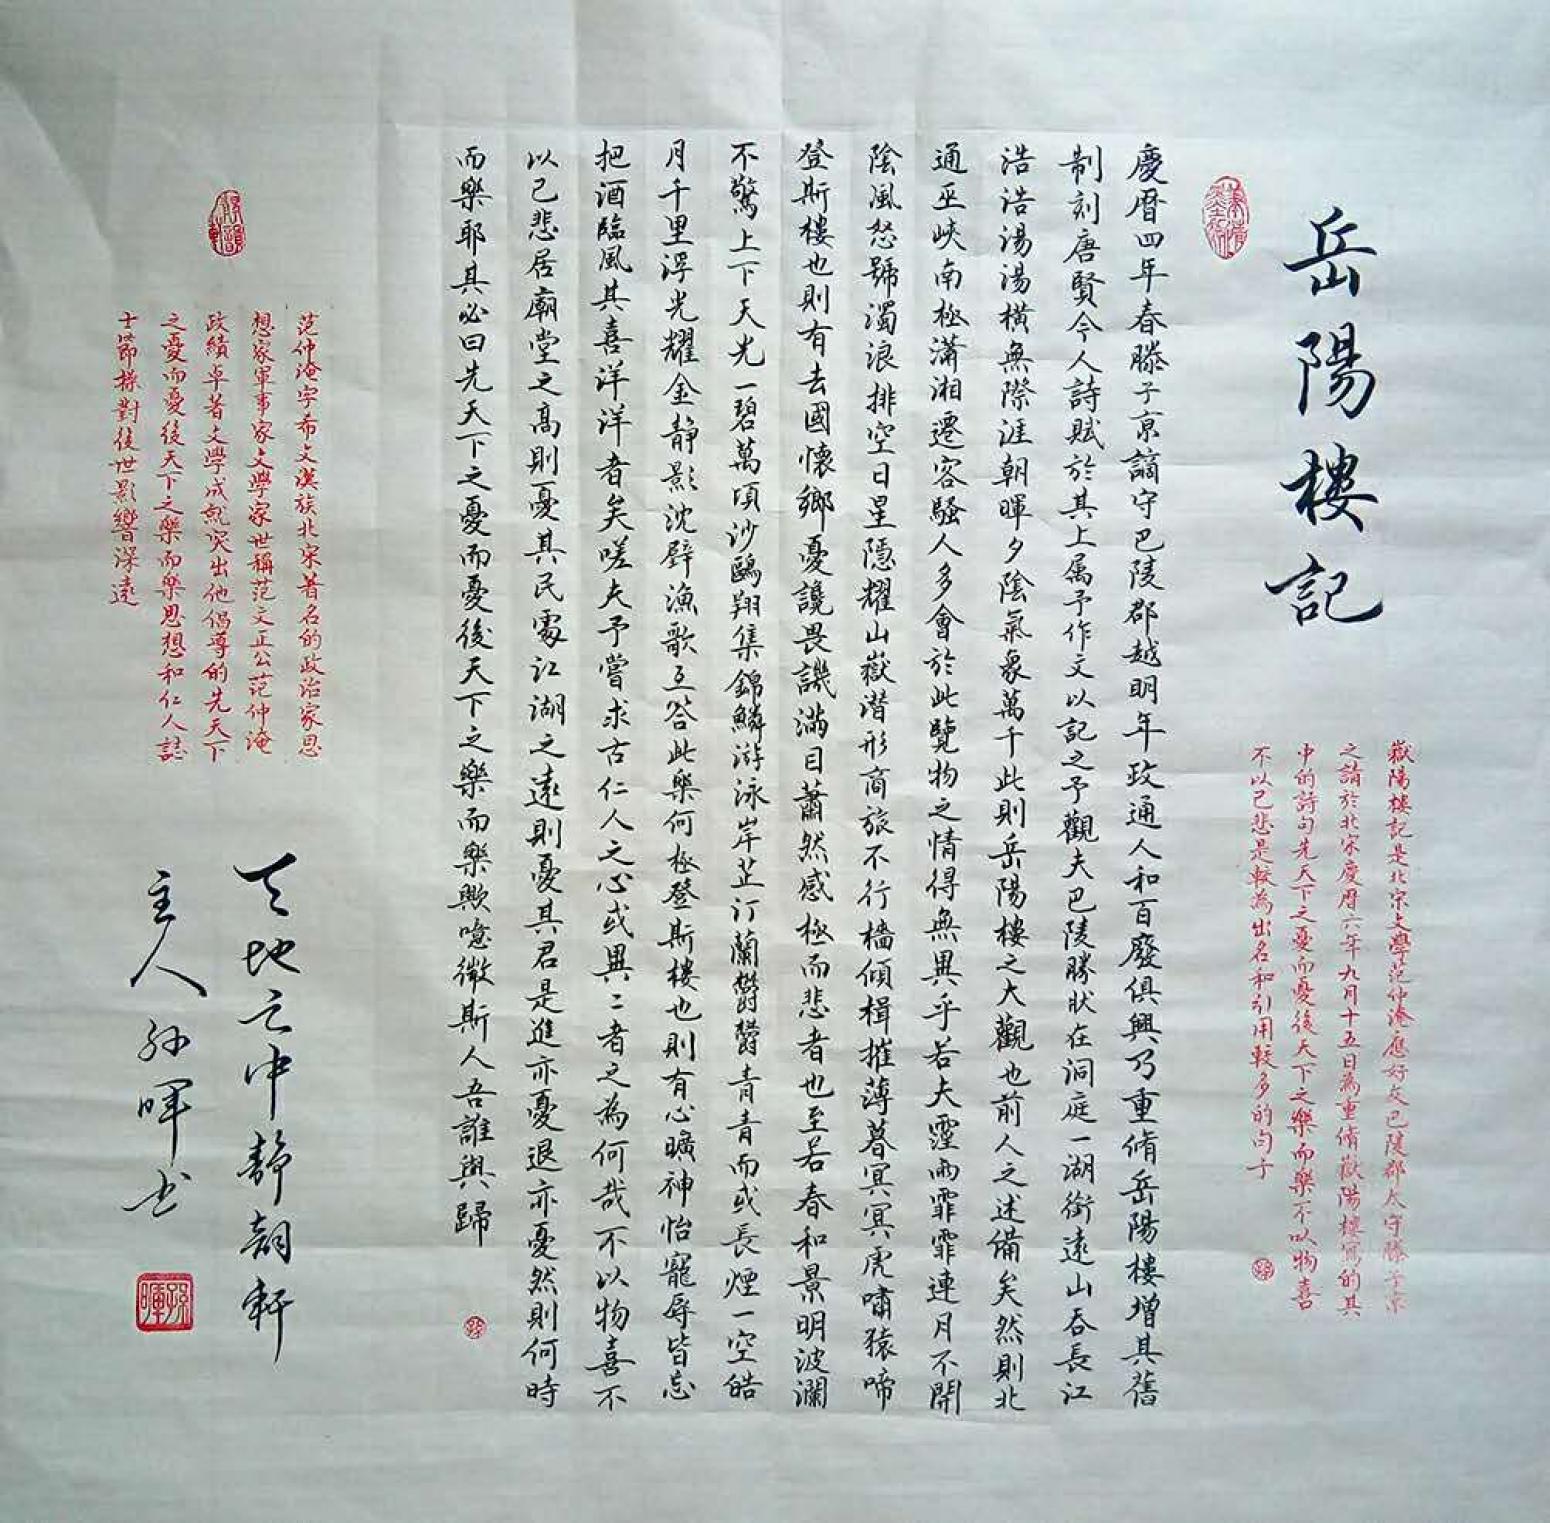 岳陽樓記
嶽陽樓記是北宋文學范仲淹應好友巴陵郡太守滕子京
之請於北宋慶曆六年九月十五日為重脩嶽陽樓寫的其
中的詩句先天下之憂而憂後天下之樂而樂不以物喜
不以己悲是較為出名和引用較多的句子
慶曆四年春滕子京謫守巴陵郡越明年政通人和百廢俱興乃重脩岳陽樓增其舊
制刻唐賢今人詩賦於其上属予作文以記之予觀夫巴陵勝狀在洞庭一湖銜遠山吞長江
浩浩湯湯橫無際涯朝暉夕陰氣象萬千此則岳陽樓之大觀也前人之述備矣然則北
通巫峽南極瀟湘遷客騷人多會於此覽物之情得無異乎若夫霪雨霏霏連月不開
陰風怒號濁浪排空日星隱耀山嶽潛形商旅不行檣傾楫摧薄暮冥冥虎嘯猿啼
登斯樓也則有去國懷鄉憂讒畏譏滿目蕭然感極而悲者也至若春和景明波瀾
不驚上下天光一碧萬頃沙鷗翔集錦鱗游泳岸芷汀蘭鬱鬱青青而或長煙一空皓
月千里浮光耀金静影沈壁漁歌互答此樂何極登斯樓也則有心曠神怡寵辱皆忘
把酒臨風其喜洋洋者矣嗟夫予嘗求古仁人之心或異二者之為何哉不以物喜不
以己悲居廟堂之高則憂其民處江湖之遠則憂其君是進亦憂退亦憂然則何時
而樂耶其必曰先天下之憂而憂後天下之樂而樂歟噫微斯人吾誰與歸
范仲淹字希文漢族北宋著名的政治家思
想家軍事家文學家世稱范文正公范仲淹
政績卓著文學成就突出他倡導的先天下
之憂而憂後天下之樂而樂思想和仁人誌
士節操對後世影響深遠
天地之中靜韻軒
主人孫暉书
孫暉